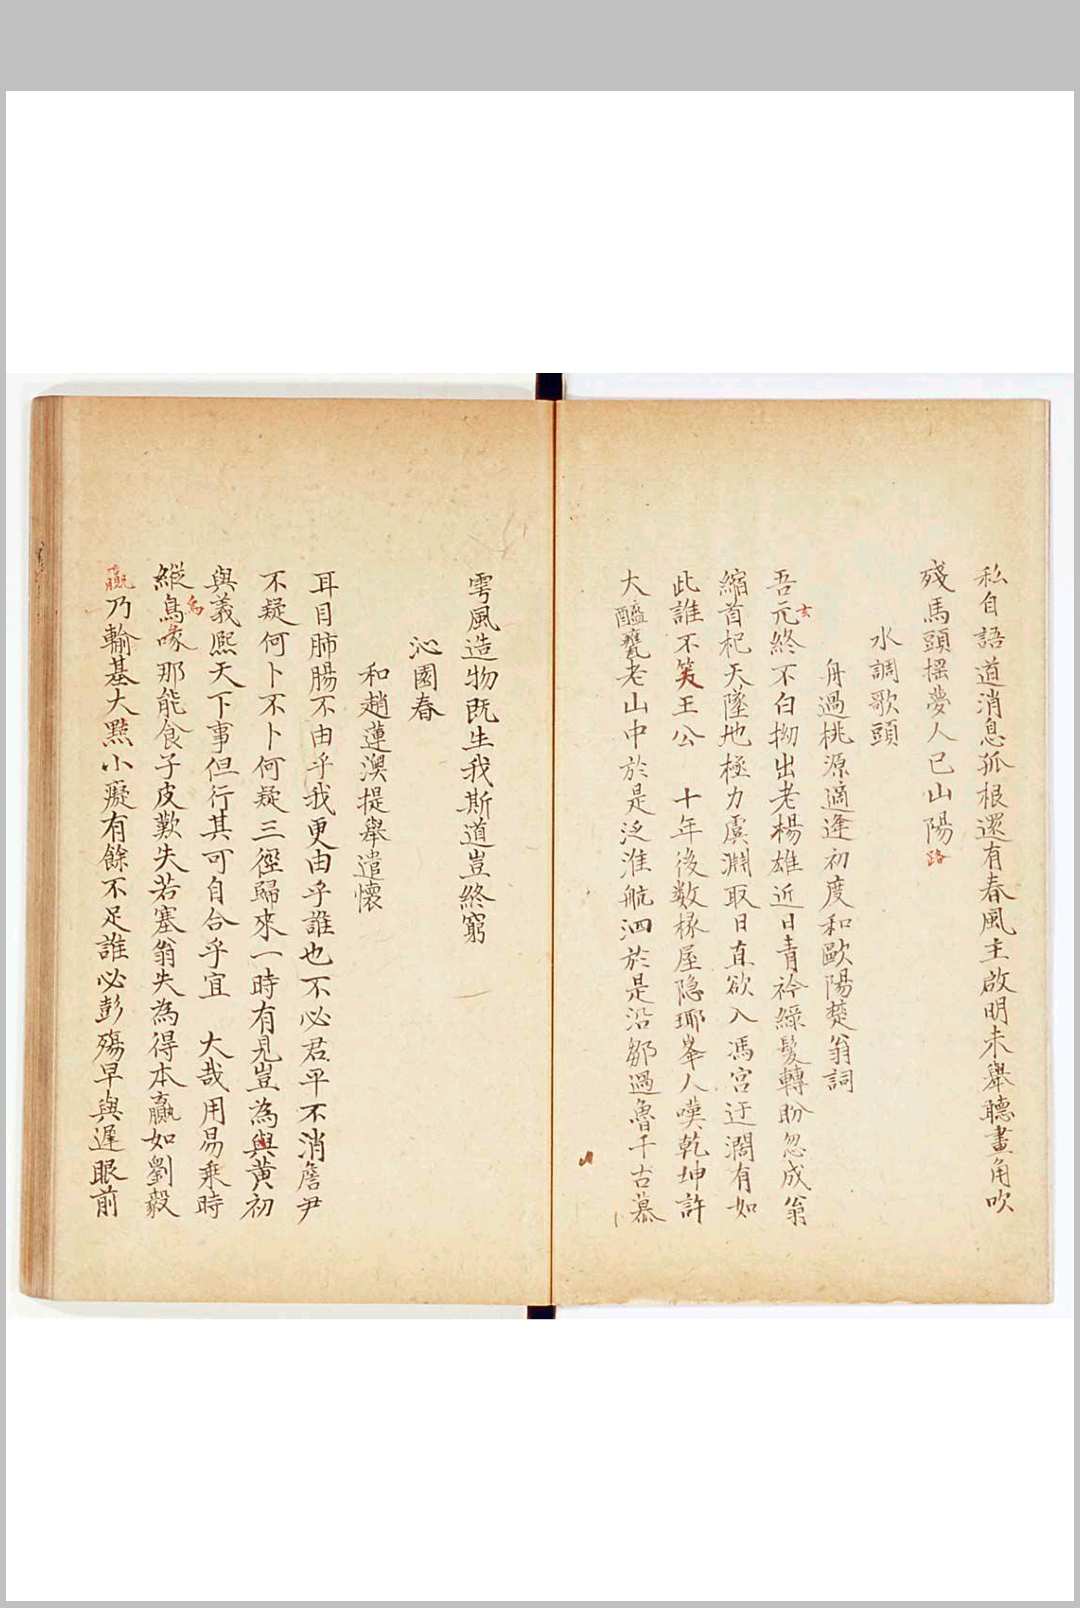 私自語道消息孤根還有春風主啟明未舉聽畫角吹
殘馬頭揺夢人已山陽路
水調歌頭
舟過桃源適逢初度和歐陽楚翁詞
吾元玄終不白拗出老楊雄近日青衿綠髮轉盼忽成翁
縮首杞天墜地極力虞淵取日直欲入馮宮迂濶有如
此誰不笑王公　十年後数椽屋隐瑘峯人嘆乾坤許
大醯甕老山中於是泛淮航泗於是沿鄒過魯千古慕
雩風造物既生我斯道豈終窮
沁園春
和趙蓮澳提舉遣懷
耳目肺腸不由乎我更由乎誰也不必君平不消詹尹
不疑何卜不卜何疑三徑歸來一時有見豈為與黄初
與義熙天下事但行其可自合乎宜　大哉用易乘時
縱鳥烏喙那能食子皮歎失若塞翁失為得本贏如劉毅
贏乃輸基大黠小癡有餘不足誰必彭殤早與遲眼前